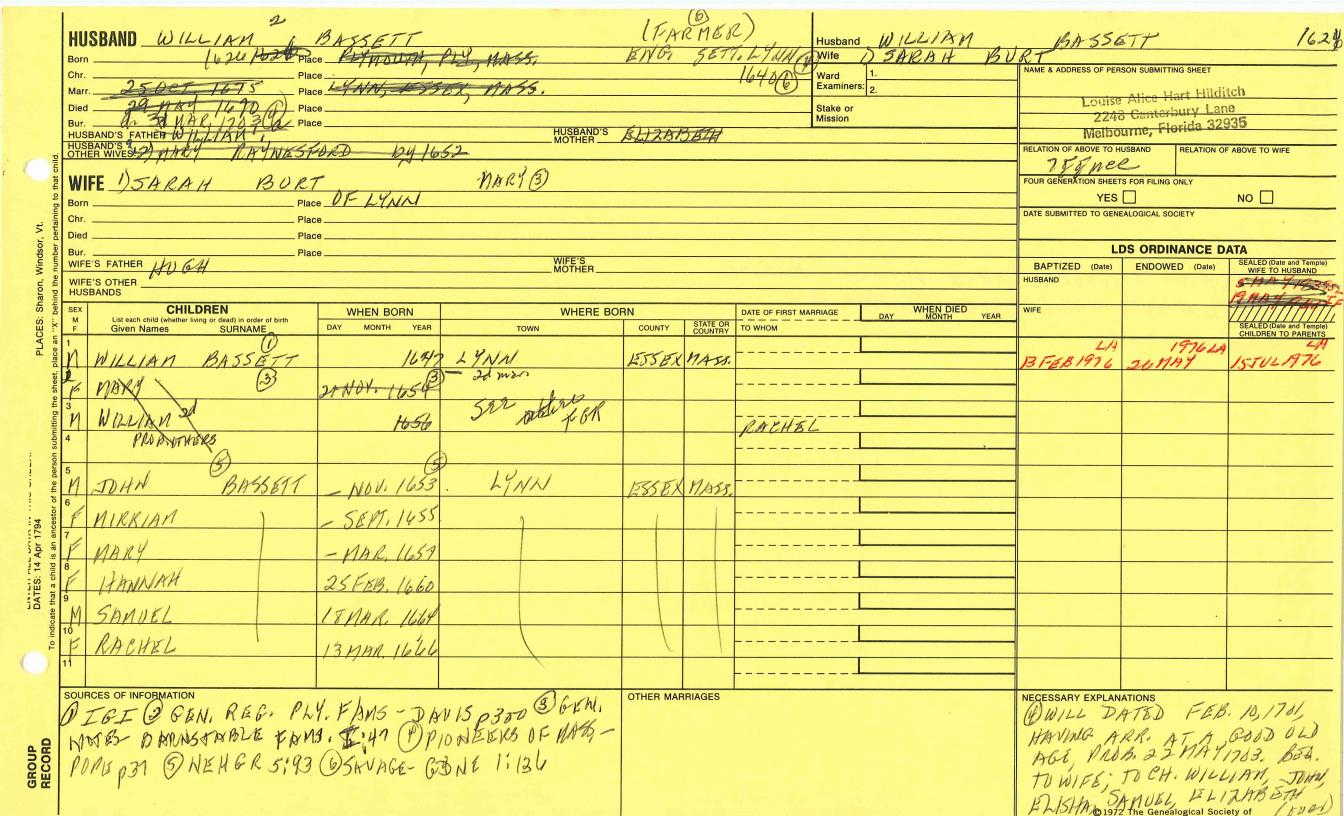 HUSBAND WILLIAM 2 BASSETT (FARMER) 6
Born 1624 Place PLYMOUTH, PLY, MASS. ENG. SETT. LYNN
Chr. Place 1640 6
Marr. 25 OCT. 1675 Place LYNN, ESSEX, MASS.
Died 29 MAY 1670 Place
Bur. MAR. 1703 Place
HUSBAND'S FATHER WILLIAM 1 HUSBAND'S MOTHER ELIZABETH
HUSBAND'S OTHER WIVES 2) MARY RAYNESFORD by 1652
Husband WILLIAM BASSETT 1624
Wife 1) SARAH BURT
Ward Examiners: 1.
2.
Stake or Mission
NAME & ADDRESS OF PERSON SUBMITTING SHEET
Louise Alice Hart Hilditch
2248 Canterbury Lane
Melbourne, Florida 32935
RELATION OF ABOVE TO HUSBAND RELATION OF ABOVE TO WIFE
FOUR GENERATION SHEETS FOR FILING ONLY
YES NO
DATE SUBMITTED TO GENEALOGICAL SOCIETY
WIFE 1) SARAH BURT MARY 3
Born Place OF LYNN
Chr. Place
Died Place
Bur. Place
WIFE'S FATHER HUGH WIFE'S MOTHER
WIFE'S OTHER HUSBANDS
LDS ORDINANCE DATA
BAPTIZED (Date) ENDOWED (Date) SEALED (Date and Temple) WIFE TO HUSBAND
HUSBAND
WIFE
SEALED (Date and Temple) CHILDREN TO PARENTS
SEX M F CHILDREN WHEN BORN WHERE BORN DATE OF FIRST MARRIAGE WHEN DIED
List each child (whether living or dead) in order of birth
Given Names SURNAME DAY MONTH YEAR TOWN COUNTY STATE OR COUNTRY TO WHOM DAY MONTH YEAR
1 M WILLIAM BASSETT 1 1647 LYNN ESSEX MASS. LA 13 FEB 1976 1976 LA 20 MAY LA 15 JUL 1976
2 F MARY 3 21 NOV. 1654 3 2d mar
3 M WILLIAM 2d 1656 See FGR RACHEL
4
5 M JOHN BASSETT 5 – NOV. 1653 5 LYNN ESSEX MASS.
6 F MIRRIAM – SEPT. 1655
7 F MARY – MAR. 1657
8 F HANNAH 25 FEB. 1660
9 M SAMUEL 18 MAR. 1664
10 F RACHEL 13 MAR. 1666
11
SOURCES OF INFORMATION
1 IGI 2 GEN. REG. PLY. FAMS – DAVIS p300 3 GEN.
NOTES BARNSTABLE FAMS. I:47 4 PIONEERS OF MASS –
POPE p37 5 NEHGR 5:93 6 SAVAGE – GDNE 1:136
OTHER MARRIAGES
NECESSARY EXPLANATIONS
4 WILL DATED FEB. 10, 1701,
HAVING ARR. AT A GOOD OLD
AGE, PROB. 22 MAY 1703. BEQ.
TO WIFE; TO CH. WILLIAM, JOHN,
ELISHA, SAMUEL, ELIZABETH
©1972 The Genealogical Society of (over)
PLACES: Sharon, Windsor, Vt.
DATES: 14 Apr 1794
To indicate that a child is an ancestor of the person submitting the sheet, place an "X" behind the number pertaining to that child.
GROUP RECORD